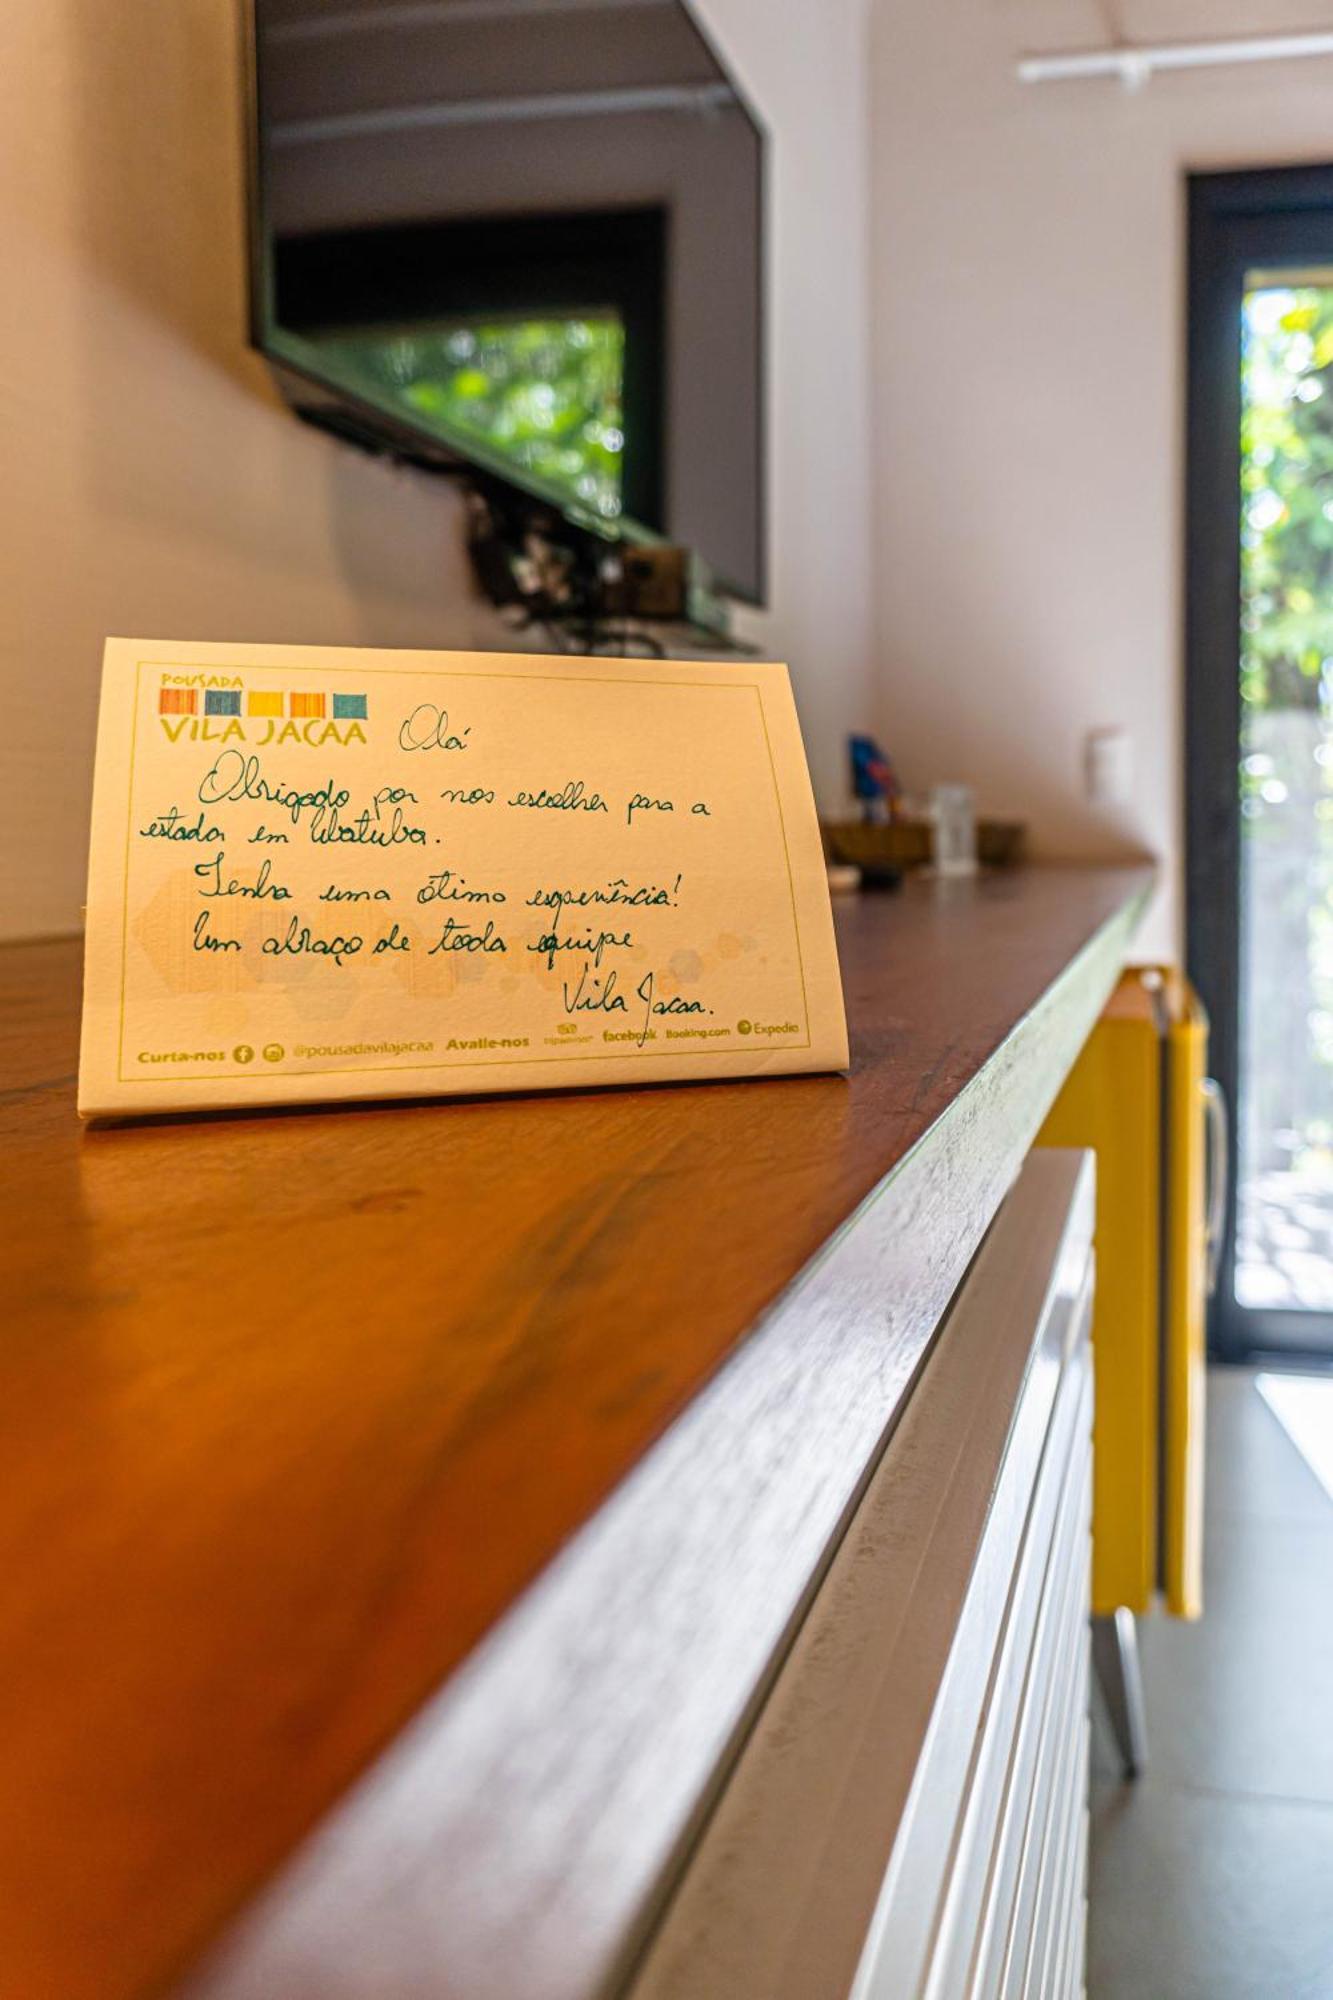 POUSADA
VILA JACAA
Olá
Obrigado por nos escolher para a
estada em Ubatuba.
Tenha uma ótima experiência!
Um abraço de toda equipe
Vila Jacaa.
Curta-nos @pousadavilajacaa Avalie-nos tripadvisor facebook Booking.com Expedia